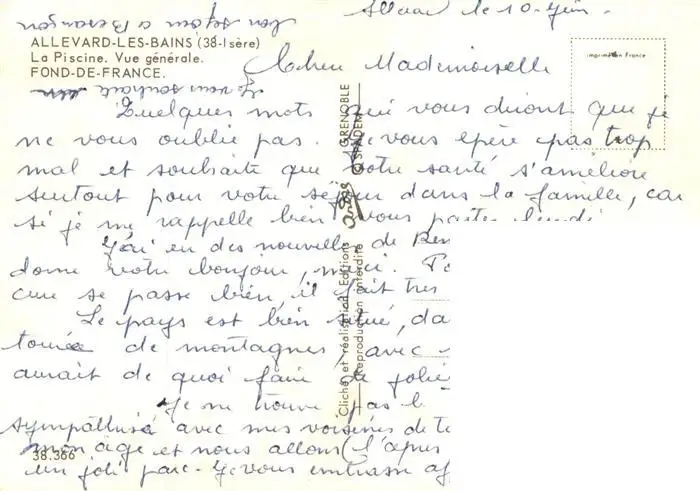 Allevard le 10 Juin.
bon séjour à Besançon
Je vous souhaite un
ALLEVARD-LES-BAINS (38-Isère)
La Piscine. Vue générale.
FOND-DE-FRANCE.
imprimé en France
Chère Mademoiselle
Quelques mots qui vous diront que je
ne vous oublie pas. Je vous epère pas trop
mal et souhaite que votre santé s'améliore
surtout pour votre séjour dans la famille, car
si je me rappelle bien vous partez lundi
J'ai eu des nouvelles de
donné votre bonjour, merci.
cure se passe bien, il fait tres
Le pays est bien situé, da
de montagnes, avec
aurait de quoi faire de
Je ne trouve pas l
sympathisé avec mes voisines de t
mon âge et nous allons (l'apr
un joli parc. Je vous embrasse af
38.366
Cliché et réalisation Editions andré GRENOBLE
Reproduction interdite SPADEM